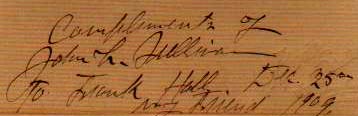 Complements of
John L. Sullivan
To Frank Hall Dec. 25th
my Friend 1909.